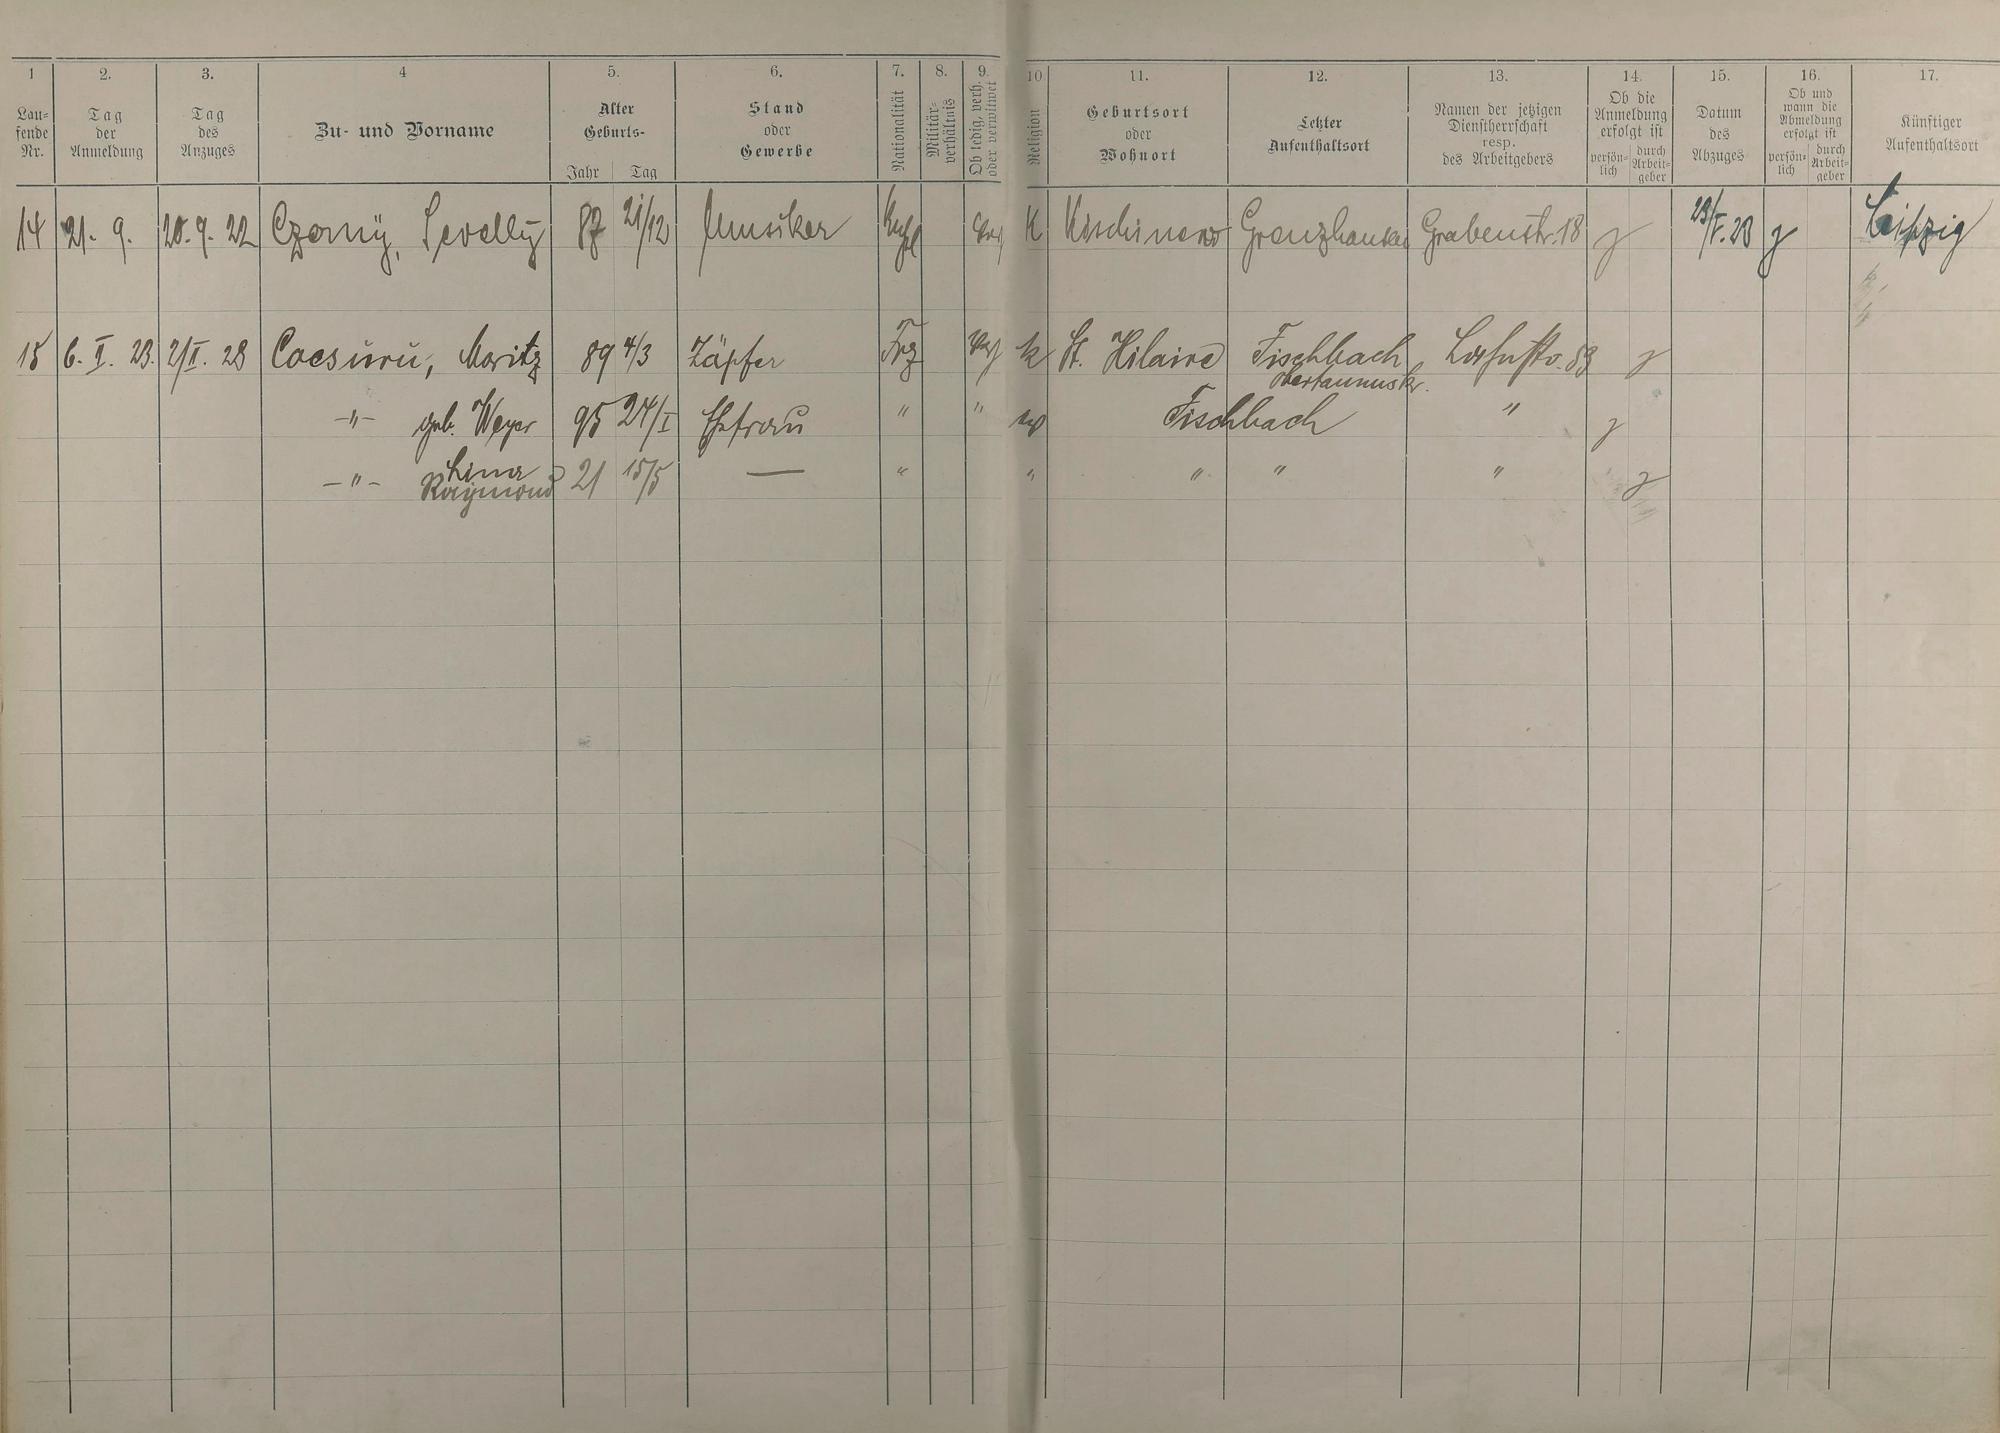 1 2. 3. 4 5. 6. 7. 8. 9. 10 11. 12. 13. 14. 15. 16. 17.
Lau-
fende
Nr.
Tag
der
Anmeldung
Tag
des
Anzuges
Zu- und Vorname
Alter
Geburts-
Jahr Tag
Stand
oder
Gewerbe
Nationalität
Militär-
verhältnis
Ob ledig, verh.
oder verwitwet
Religion
Geburtsort
oder
Wohnort
Letzter
Aufenthaltsort
Namen der jetzigen
Dienstherrschaft
resp.
des Arbeitgebers
Ob die
Anmeldung
erfolgt ist
persön-
lich
durch
Arbeit-
geber
Datum
des
Abzuges
Ob und
wann die
Abmeldung
erfolgt ist
persön-
lich
durch
Arbeit-
geber
Künftiger
Aufenthaltsort
14 21. 9. 20. 9. 22 Czornÿ, 87 21/12 Musiker K Kischinew Grenzhausen Grabenstr. 18 23/V. 23 Leipzig
15 6. II. 23. 2/II. 23 Coesuru, Moritz 89 4/3 Zäpfer Frz k St. Hilaire Fischbach 83
Obertaunuskr.
-"- geb. Weyer 95 24/I Ehefrau " " Fischbach "
Lina
-"- Raymond 21 15/5 — " " " " "